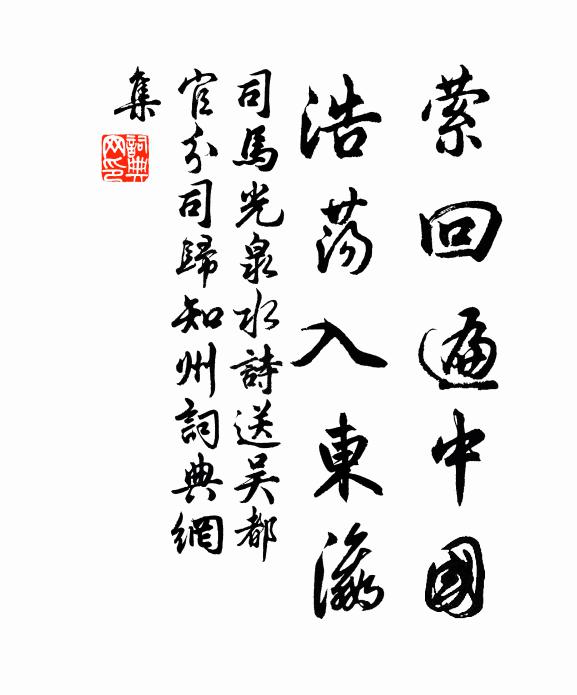 縈回遍中國
浩蕩入東瀛
司馬光泉水詩送吴都
官分司歸知州詞典網
集
詞典
网印